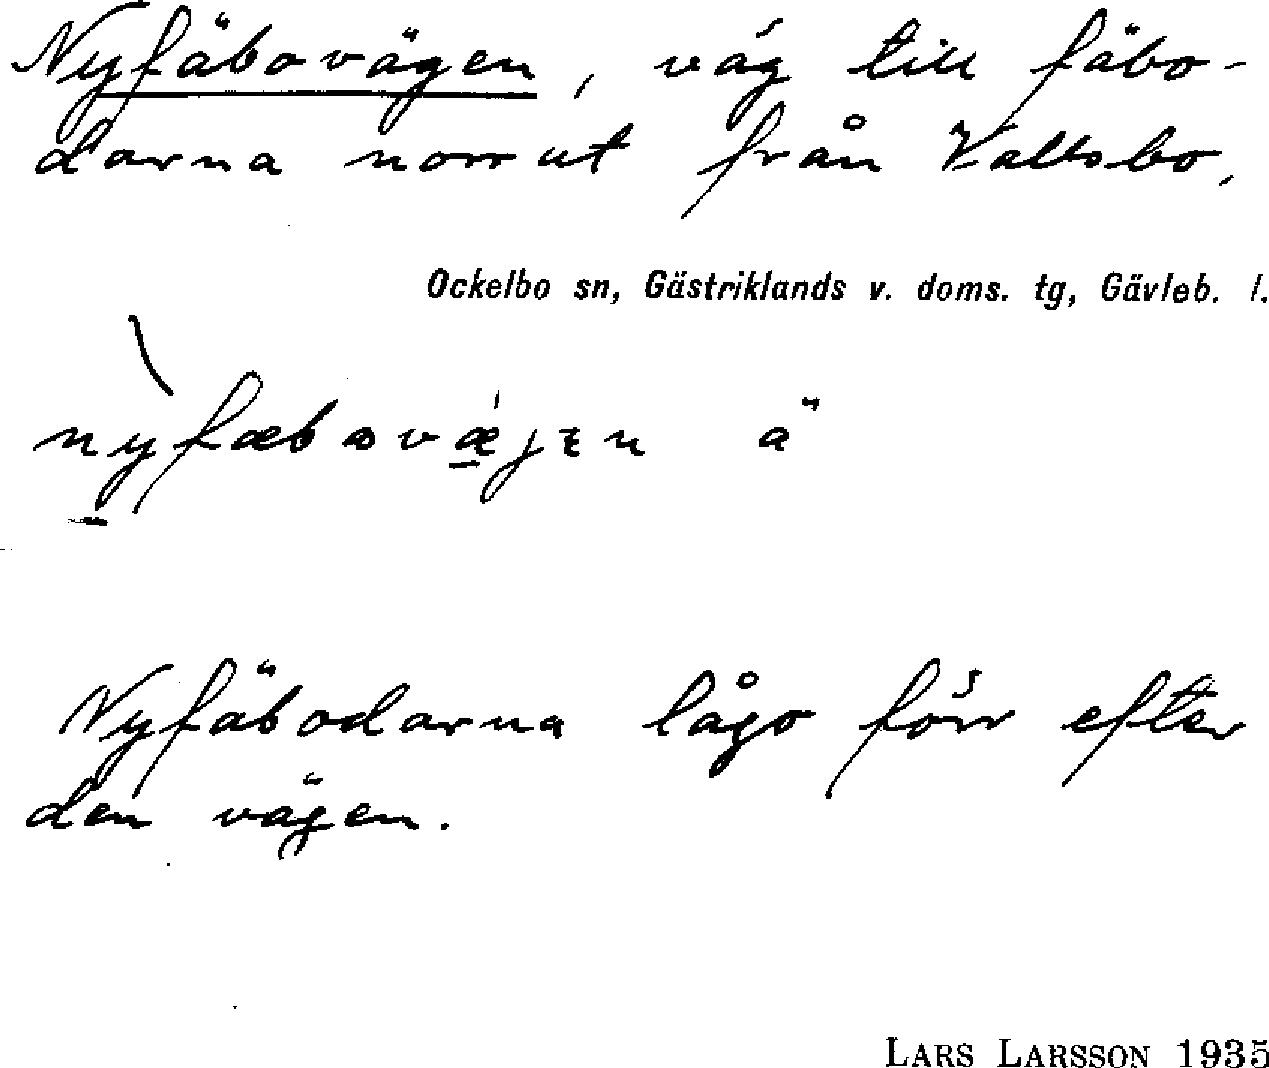 Nyfäbovägen, väg till fäbo-
darna norrut från Vallsbo,
Ockelbo sn, Gästriklands v. doms. tg, Gävleb. l.
nỳfæbovǽjen ä
Nyfäbodarna lågo förr efter
den vägen.
LARS LARSSON 1935